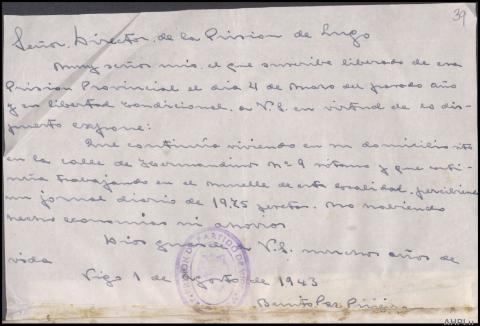 39
Señor Director de la Prision de Lugo
Muy señor mio, el que suscribe liberado de esa
Prision Provincial el dia 4 de Marzo del pasado año
y en libertad condicional, a V.S. en virtud de lo dis-
puesto expone:
Que continua viviendo en su domicilio sito
en la calle de nº 9 sotano y que conti-
nua trabajando en el muelle de esta localidad, percibiendo
un jornal diario de 19,75 pesetas. No habiendo
hecho economias ni ahorros
Dios guarde a V.S. muchos años de
vida
Vigo 1 de Agosto de 1943
Benito Paz
PARTIDO DE
AHPLu